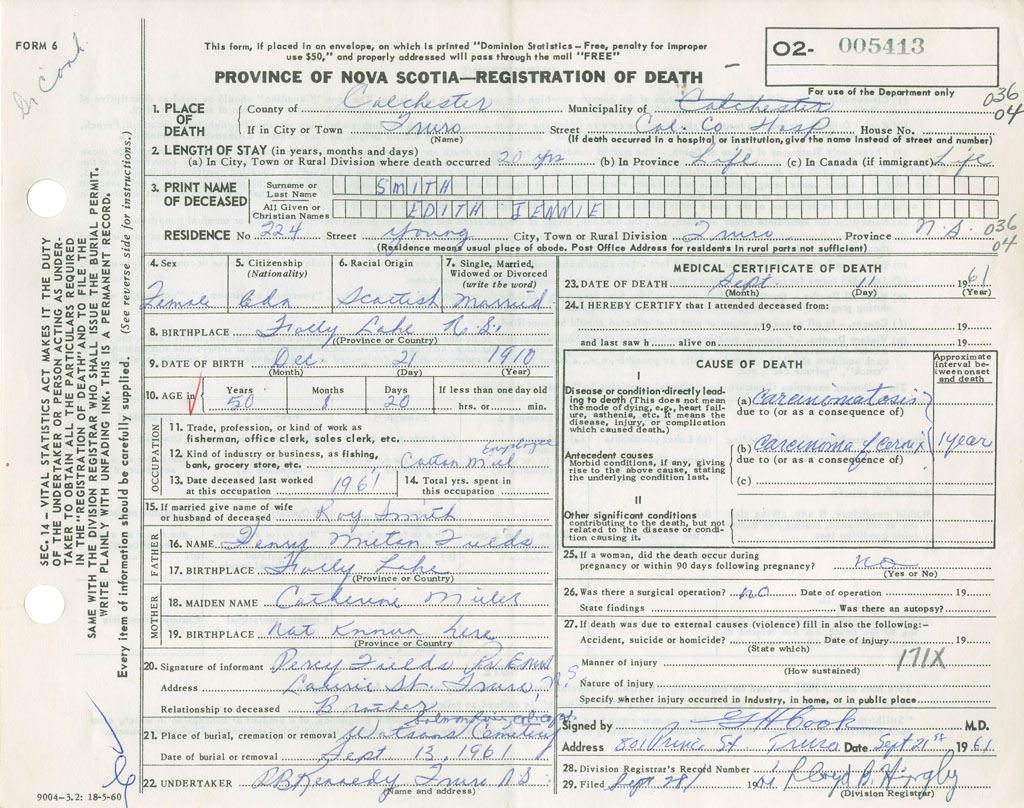 FORM 6
This form, if placed in an envelope, on which is printed "Dominion Statistics – Free, penalty for improper
use $50," and properly addressed will pass through the mail "FREE"
O2- 005413
For use of the Department only
PROVINCE OF NOVA SCOTIA—REGISTRATION OF DEATH
036
04
1. PLACE OF DEATH
County of Colchester Municipality of Colchester
If in City or Town Truro Street Col. Co Hosp House No.
(Name) (If death occurred in a hospital or institution, give name instead of street and number)
2. LENGTH OF STAY (in years, months and days)
(a) In City, Town or Rural Division where death occurred 20 yrs (b) In Province Life (c) In Canada (if immigrant) Life
3. PRINT NAME OF DECEASED
Surname or Last Name SMITH
All Given or Christian Names EDITH JENNIE
RESIDENCE No 224 Street Young City, Town or Rural Division Truro Province N.S.
036
04
(Residence means usual place of abode. Post Office Address for residents in rural parts not sufficient)
4. Sex Female
5. Citizenship (Nationality) Cdn
6. Racial Origin Scottish
7. Single, Married, Widowed or Divorced (write the word) Married
8. BIRTHPLACE Folly Lake N.S.
(Province or Country)
9. DATE OF BIRTH Dec. 21 1910
(Month) (Day) (Year)
10. AGE in Years 50 Months 8 Days 20 If less than one day old hrs. or min.
OCCUPATION
11. Trade, profession, or kind of work as
fisherman, office clerk, sales clerk, etc.
12. Kind of industry or business, as fishing,
bank, grocery store, etc. Employee Cotton Mill
13. Date deceased last worked
at this occupation 1961
14. Total yrs. spent in
this occupation
15. If married give name of wife
or husband of deceased Roy Smith
FATHER
16. NAME Fields
17. BIRTHPLACE Folly Lake
(Province or Country)
MOTHER
18. MAIDEN NAME Catherine
19. BIRTHPLACE Not Known here
(Province or Country)
20. Signature of informant Percy Fields
Address St. Truro, N.S
Relationship to deceased Brother
21. Place of burial, cremation or removal Watsons Cemetery
Date of burial or removal Sept 13, 1961
22. UNDERTAKER Kennedy Truro N.S.
(Name and address)
9004-3.2: 18-5-60
MEDICAL CERTIFICATE OF DEATH
23. DATE OF DEATH Sept. 11 1961
(Month) (Day) (Year)
24. I HEREBY CERTIFY that I attended deceased from:
19 to 19
and last saw h alive on 19
CAUSE OF DEATH
Approximate interval between onset and death
I
Disease or condition-directly leading to death (This does not mean
the mode of dying, e.g., heart failure, asthenia, etc. It means the
disease, injury, or complication
which caused death.)
(a) Carcinomatosis
due to (or as a consequence of)
Antecedent causes
Morbid conditions, if any, giving
rise to the above cause, stating
the underlying condition last.
(b) Carcinoma of cervix 1 year
due to (or as a consequence of)
(c)
II
Other significant conditions
contributing to the death, but not
related to the disease or condition causing it.
25. If a woman, did the death occur during
pregnancy or within 90 days following pregnancy? no
(Yes or No)
26. Was there a surgical operation? no Date of operation 19
State findings Was there an autopsy?
27. If death was due to external causes (violence) fill in also the following:–
Accident, suicide or homicide? Date of injury 19
(State which)
Manner of injury 171X
(How sustained)
Nature of injury
Specify whether injury occurred in Industry, in home, or in public place
Signed by Cook M.D.
Address 801 Prince St Truro Date Sept 21st 1961
28. Division Registrar's Record Number
29. Filed Sept 28/ 19
(Division Registrar)
SEC. 14 – VITAL STATISTICS ACT MAKES IT THE DUTY
OF THE UNDERTAKER OR PERSON ACTING AS UNDERTAKER TO OBTAIN ALL THE PARTICULARS REQUIRED
IN THE "REGISTRATION OF DEATH" AND TO FILE THE
SAME WITH THE DIVISION REGISTRAR WHO SHALL ISSUE THE BURIAL PERMIT.
WRITE PLAINLY WITH UNFADING INK. THIS IS A PERMANENT RECORD.
Every item of information should be carefully supplied. (See reverse side for instructions.)